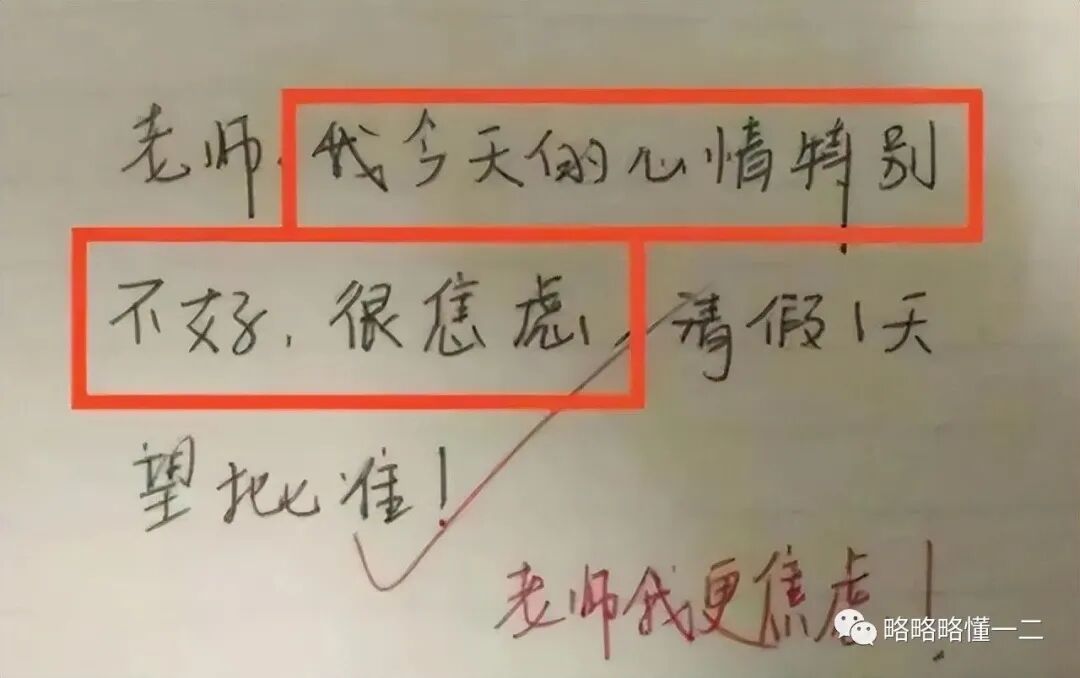 老师，我今天的心情特别
不好，很焦虑，请假1天
望批准！
老师我更焦虑！
略略略懂一二